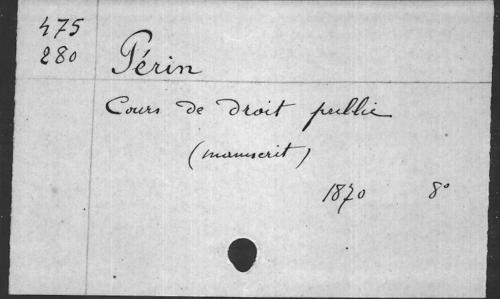 475
280
Périn
Cours de droit public
(manuscrit)
1870 8°